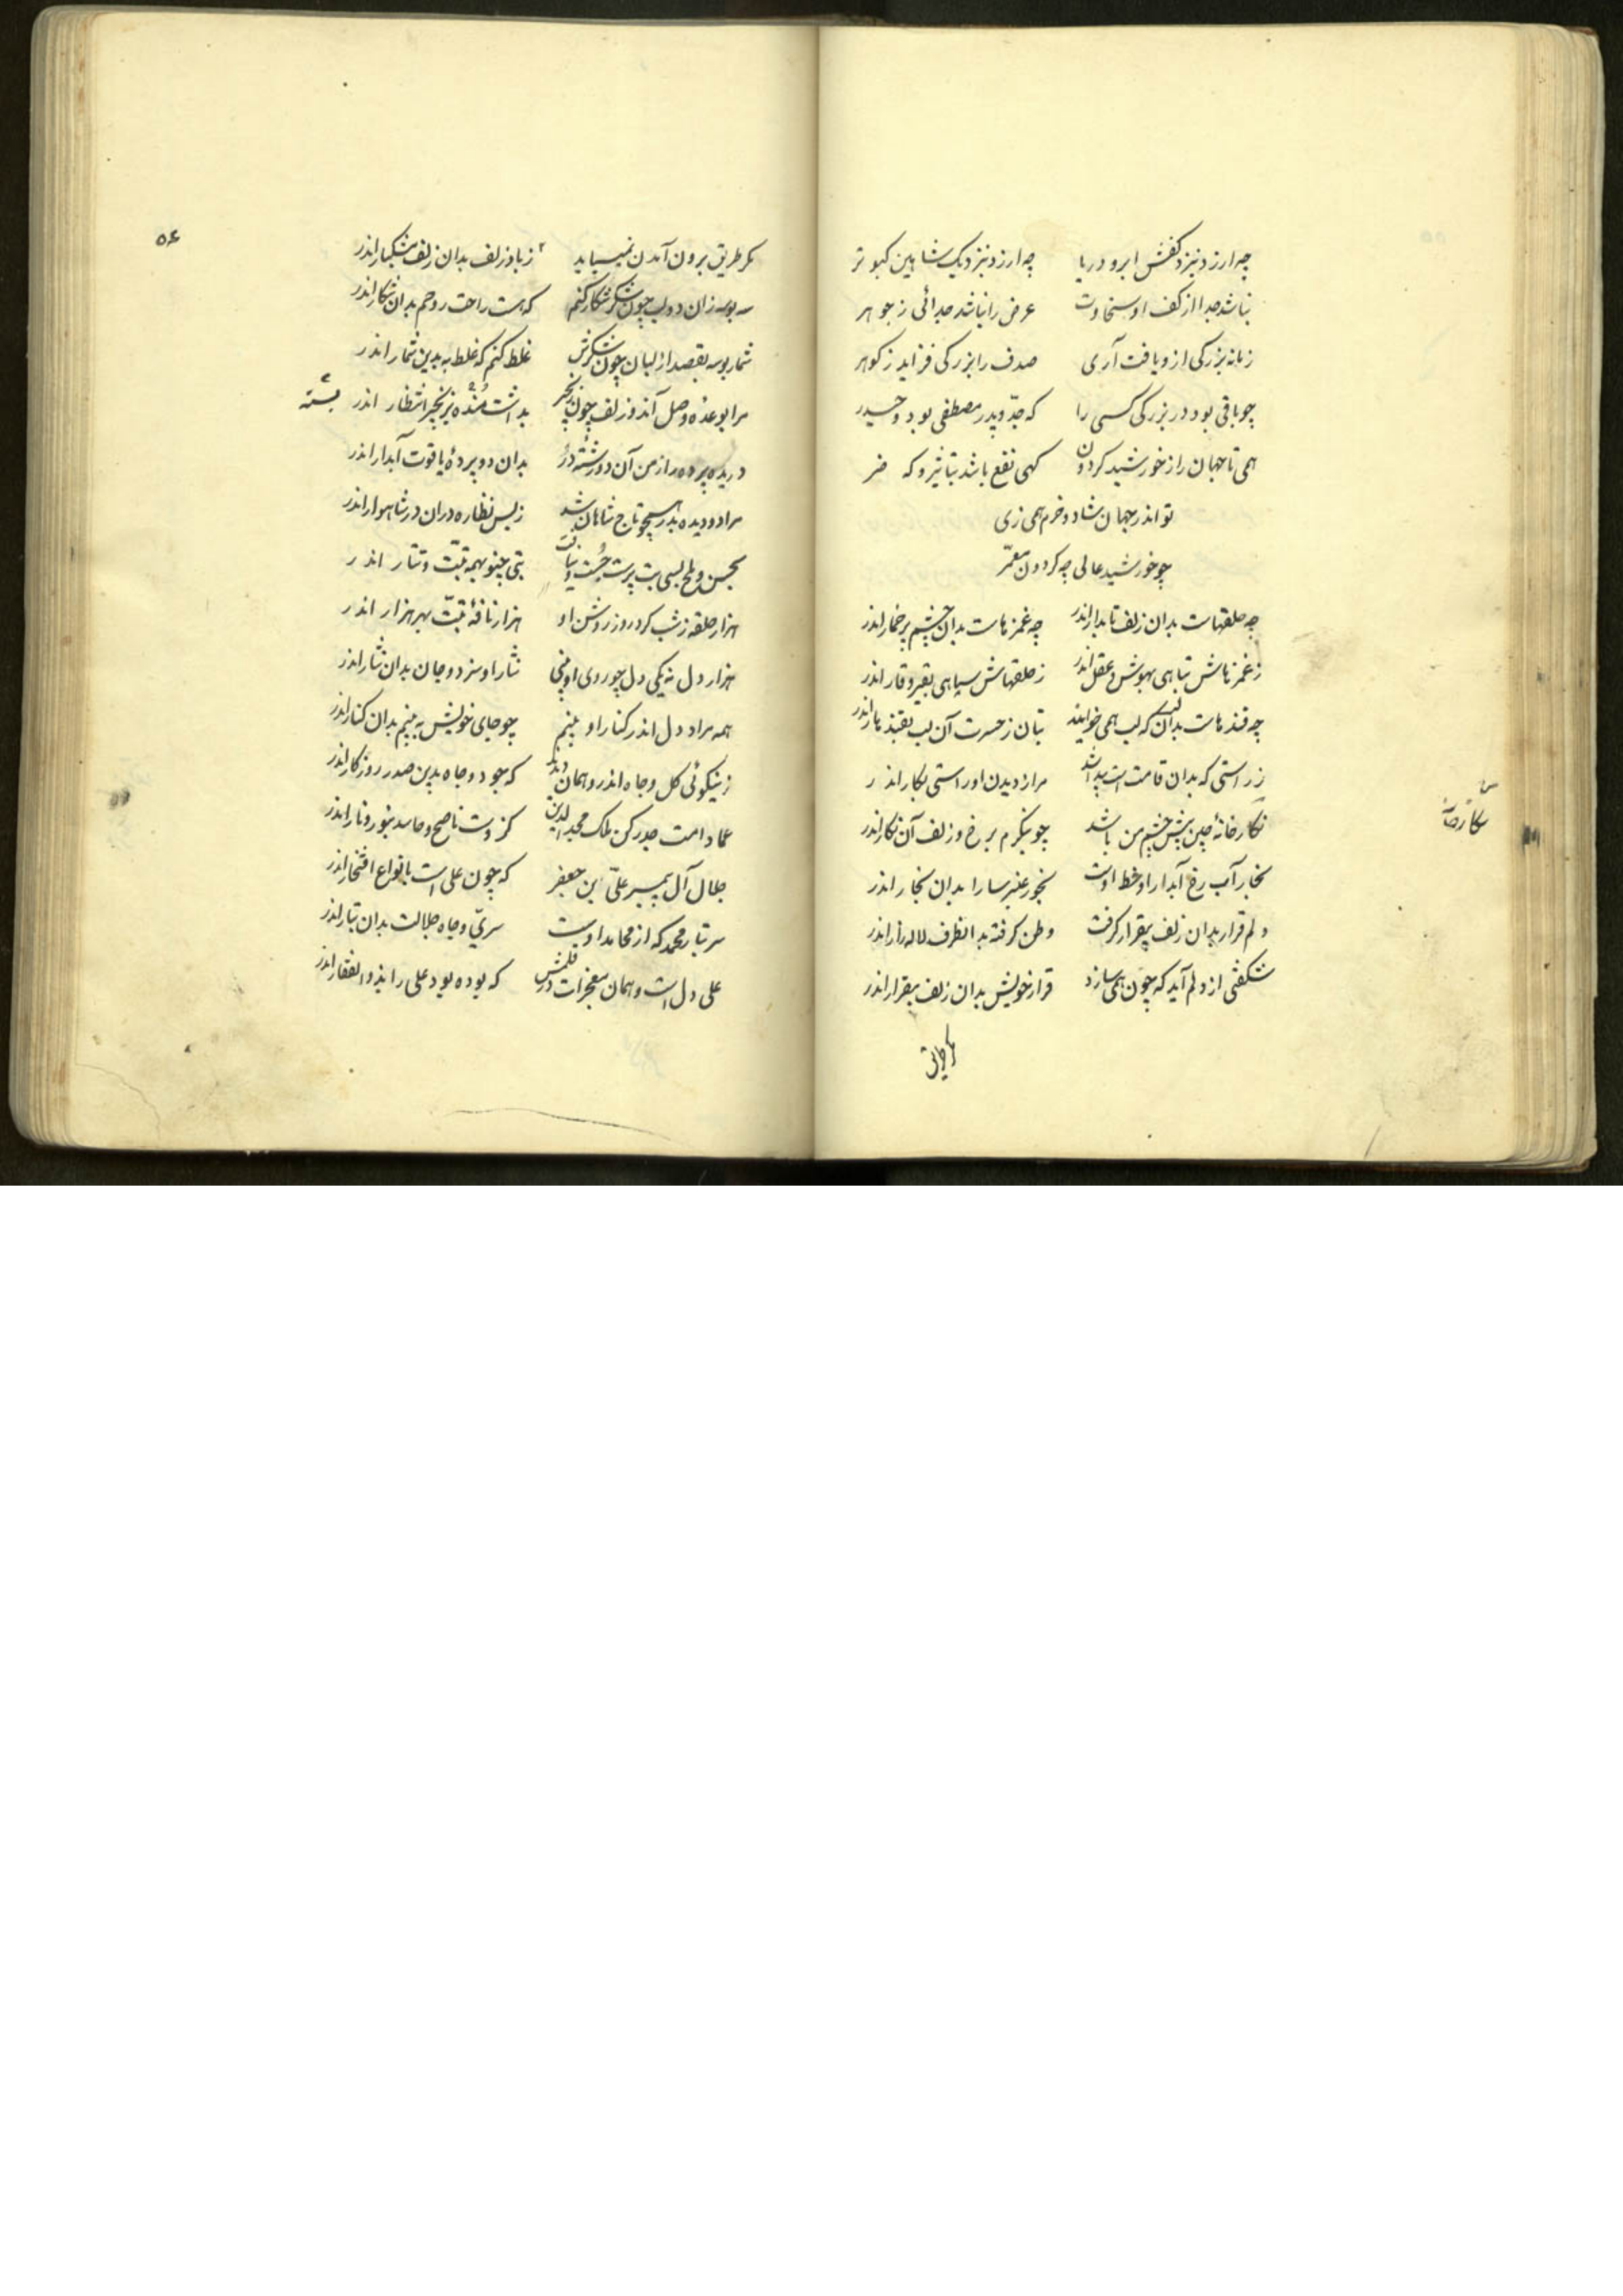 چه ارزد نبزد کفش ابر و دریا چه ارزد نبزدیک شاهین کبوتر
نباشد جدا از کف او سخاوت عرض را نباشد جدائی ز جوهر
زمانه بزرکی ازو یافت آری صدف را بزرکی فزاید ز کوهر
چو باقی بود در بزرکی کسی را که جدّ و پدر مصطفی بود و حیدر
همی تا جهان را ز خورشید کردون کهی نفع باشد بتاثیر و که ضر
تو اندر جهان شاد و خرم همی زی
چو خورشید عالی چه کردون معمّر
چه حلقهاست بدان زلف تابدار اندر چه غمزهاست بدان چشم پر خمار اندر
ز غمزهاش تباهی بهوش و عقل اندر ز حلقهاش سیاهی بقیر و قار اندر
چه قندهاست بدان لب که لب همی خوانند بتان ز حسرت آن لب بقندهار اندر
ز راستی که بدان قامت است پیدا شد مرا ز دیدن او راستی بکار اندر
نکارخانهٔ چین پیش چشم من باشد چو بنکرم برخ و زلف آن نکار اندر
بخار آب رخ آبدار او خط اوست بخور عنبر سارا بدان بخار اندر
دلم قرار بدان زلف بیقرار کرفت وطن کرفته بدانطرف لاله زار اندر
شکفتی از دلم آید که چون همی سازد قرار خویش بدان زلف بیقرار اندر
۵۶
مکر طریق برون آمدن نمییابد ز باد زلف بدان زلف مشکبار اندر
سه بوسه زان دو لب چون شکر شکار کنم که هست راحت روحم بدان شکار اندر
شمار بوسه بقصد از لبان چون شکرش غلط کنم که غلط به بدین شمار اندر
مرا بوعده وصل آندو زلف چون زنجیر بداشت بزنجیر انتظار اندر
بسته
دریده پرده راز من آن دو رشته در بدان دو پردهٔ یاقوت آبدار اندر
مرا دو دیده بدر همچو تاج شاهان شد ز بس نظاره دران در شاهوار اندر
بتی چنو بهمه تبّت و تتار اندر
هزار حلقه ز شب کرد روز روشن او هزار نافهٔ تبّت بهر هزار اندر
هزار دل نه یکی دل چو روی او بینی نثار او سزد و جان بدان نثار اندر
همه مراد دل اندر کنار او بینم چو جای خویش به بینم بدان کنار اندر
ز نیکوئی کل و جاه اندرو همان که جود و جاه بدین صدر روزکار اندر
عماد امت صدر کن ملک مجد الدین کز وست ناصح و حاسد بنور و نار اندر
جلال آل پیمبر علیّ ابن جعفر که چون علی است بانواع افتخار اندر
سر تبار محمد که از محامد اوست سریّ و جاه جلالت بدان تبار اندر
علی دل است و همان معجزات در قلمش که بوده بود علی را بذوالفقار اندر